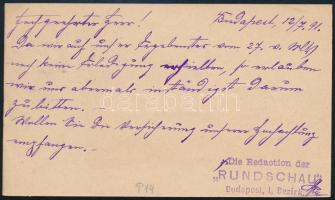 Budapest, 12/7. 91.
Hochgeehrter Herr!
Da wir auf unser Ergebenstes vom 27. v. Mts
noch keine Erledigung erhielten, so erlauben
wir uns abermals inständigst darum
zu bitten.
Wollen Sie die Versicherung unserer Hochachtung
empfangen.
Die Redaction der
„RUNDSCHAU"
Budapest, I. Bezirk,
P14